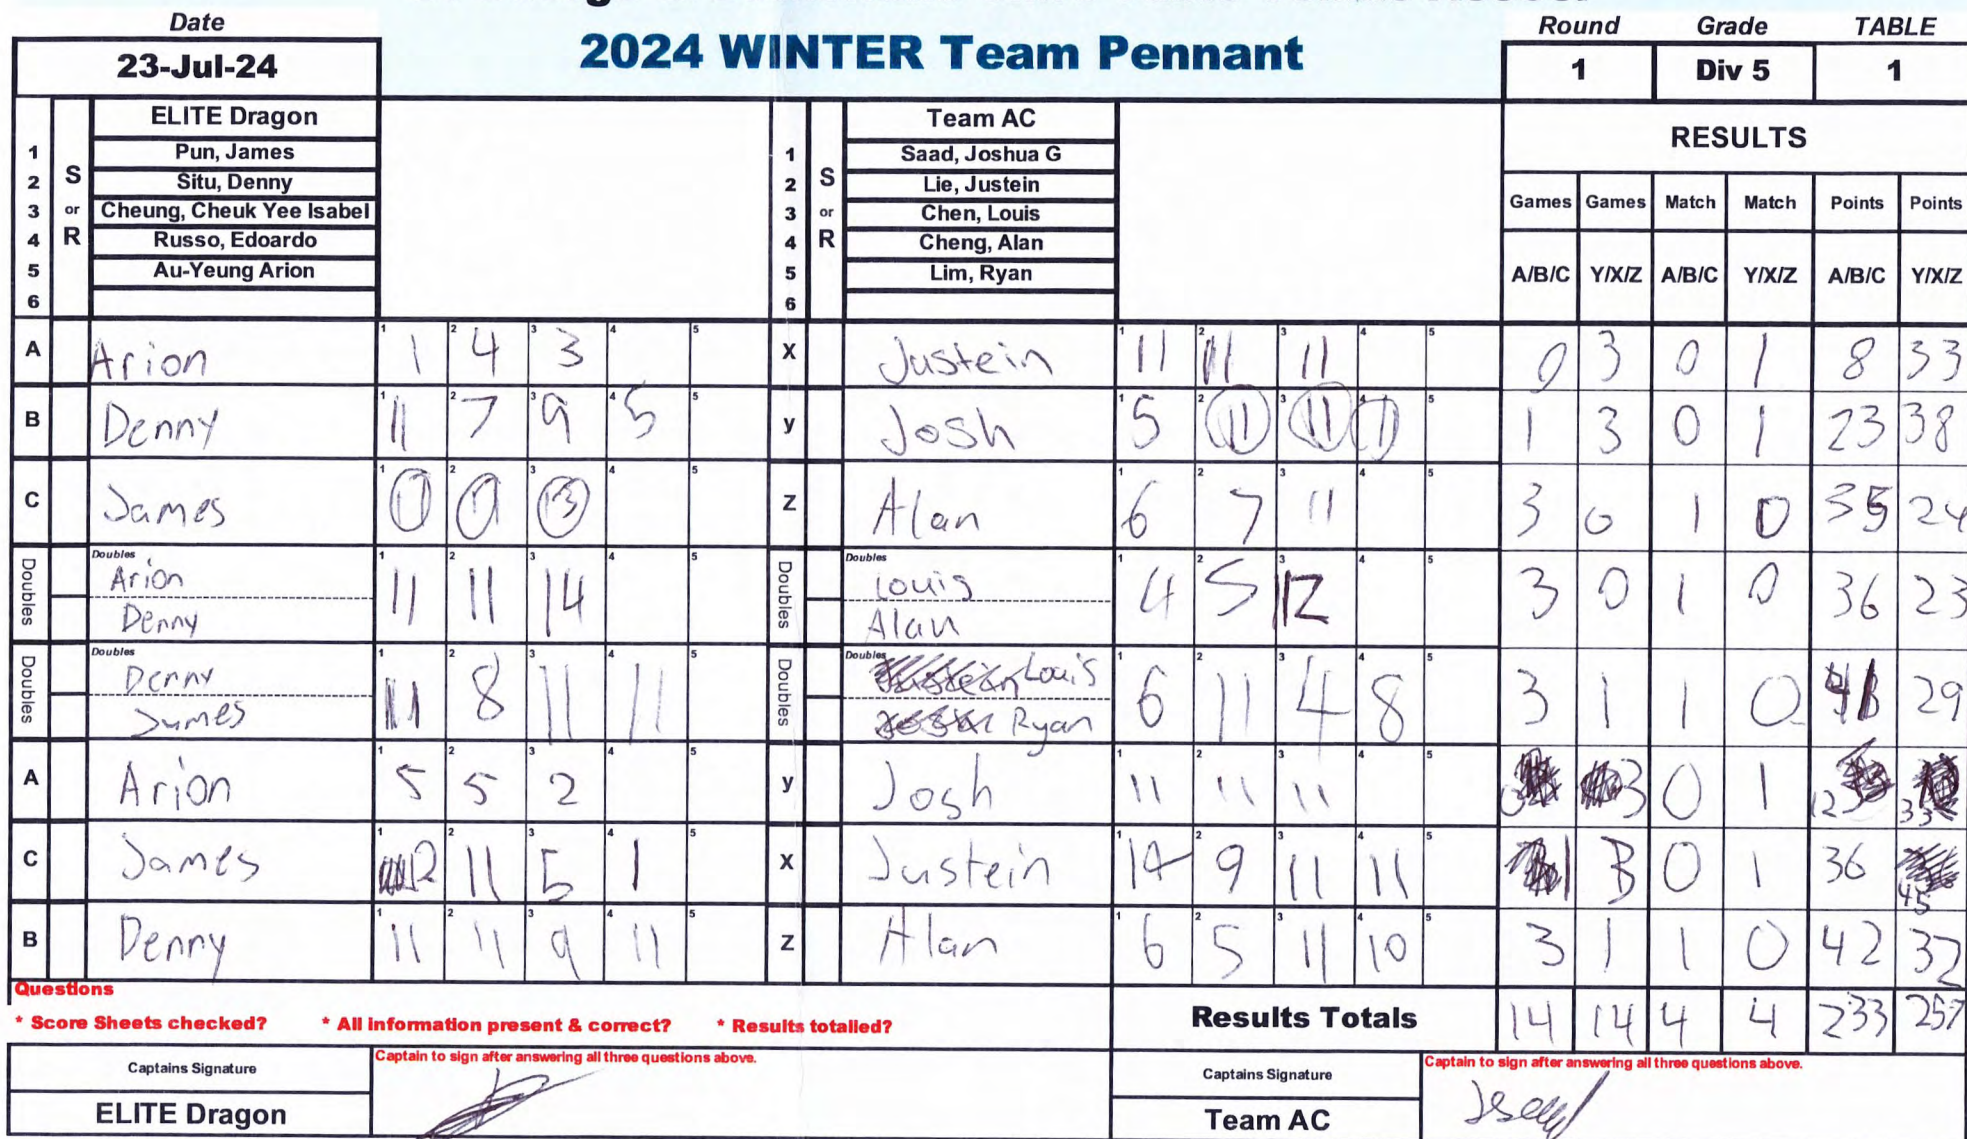 Date
23-Jul-24
2024 WINTER Team Pennant
Round Grade TABLE
1 Div 5 1
S or R
1 2 3 4 5 6
ELITE Dragon
Pun, James
Situ, Denny
Cheung, Cheuk Yee Isabel
Russo, Edoardo
Au-Yeung Arion
S or R
1 2 3 4 5 6
Team AC
Saad, Joshua G
Lie, Justein
Chen, Louis
Cheng, Alan
Lim, Ryan
RESULTS
Games Games Match Match Points Points
A/B/C Y/X/Z A/B/C Y/X/Z A/B/C Y/X/Z
A Arion 1 4 3 X Justein 11 11 11 0 3 0 1 8 33
B Denny 11 7 9 5 y Josh 5 11 11 11 1 3 0 1 23 38
C James 11 11 13 Z Alan 6 7 11 3 0 1 0 35 24
Doubles Doubles Arion Denny 11 11 14 Doubles Doubles Louis Alan 4 5 12 3 0 1 0 36 23
Doubles Doubles Denny James 11 8 11 11 Doubles Doubles Louis Ryan 6 11 4 8 3 1 1 0 41 29
A Arion 5 5 2 y Josh 11 11 11 0 3 0 1 12 33
C James 12 11 5 1 X Justein 14 9 11 11 1 3 0 1 36 45
B Denny 11 11 9 11 Z Alan 6 5 11 10 3 1 1 0 42 32
Questions
* Score Sheets checked? * All information present & correct? * Results totalled?
Results Totals 14 14 4 4 233 257
Captains Signature
Captain to sign after answering all three questions above.
ELITE Dragon
Captains Signature
Captain to sign after answering all three questions above.
Team AC